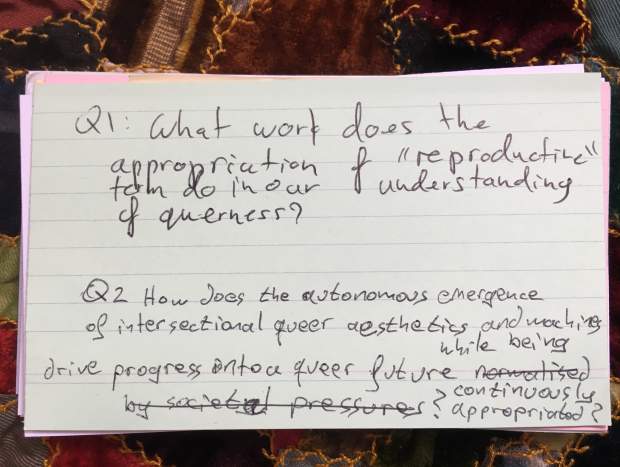 Q1: What work does the
appropriation of "reproductive"
form do in our understanding
of querness?
Q2 How does the autonomous emergence
of intersectional queer aesthetics and machines
while being
drive progress onto a queer future normalised
by societal pressures? continuously
appropriated?